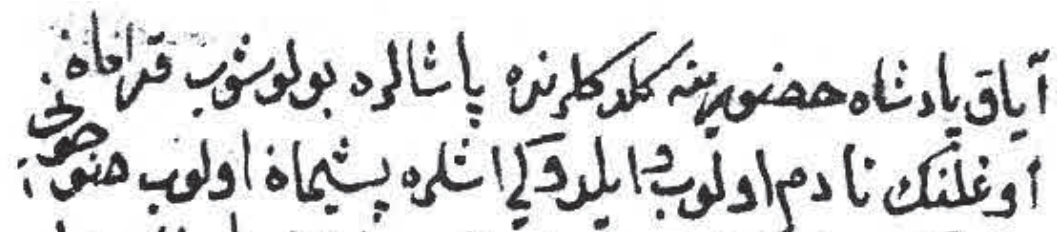 آیاق پادشاه حضورینه کلدکلرنده پاشالره بولوشوب قرافاه
اوغلنك نادم اولوب و ایلدوکی اشلره پشیمان اولوب هنوز